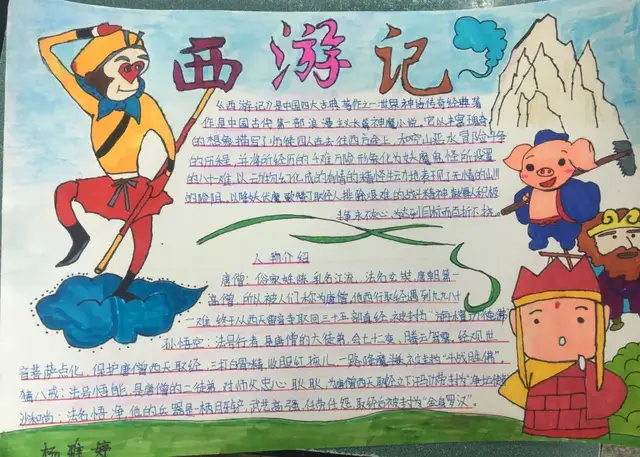 西游记
《西游记》是中国四大古典著作之一世界神话传奇经典著
作是中国古代第一部浪漫主义长篇神魔小说,它以丰富瑰奇
的想象描写了师徒四人在去往西方途上和穷山恶水冒险斗争
的历程,并将所经历的千难万险形象化为妖魔鬼怪所设置
的八十难,以动物幻化成的有情的精怪生动地表现了无情的山川
的险阻,以降妖伏魔歌赞了取经人排除艰难的战斗精神
永不灰心,为达到目标而百折不挠。
人物介绍
唐僧:俗家姓陈,乳名江流,法名玄奘,唐朝第一
高僧,所以被人们称为唐僧,他西行取经遇到九九八十
一难,终于从西天雷音寺取回三十五部真经,被封为
孙悟空:法号行者,是唐僧的大徒弟,会七十二变,腾云驾雾,经观世
音菩萨点化,保护唐僧西天取经,三打白骨精,收服红孩儿,一路降魔,被封为"斗战胜佛"。
猪八戒:法号悟能,是唐僧的二徒弟,对师父忠心耿耿,为唐僧西天取经立下汗马功劳封为"净坛使者"
沙和尚:法名悟净,他的兵器是一柄月牙铲,武艺高强,任劳任怨,取经后被封为"金身罗汉"。
杨雅婷